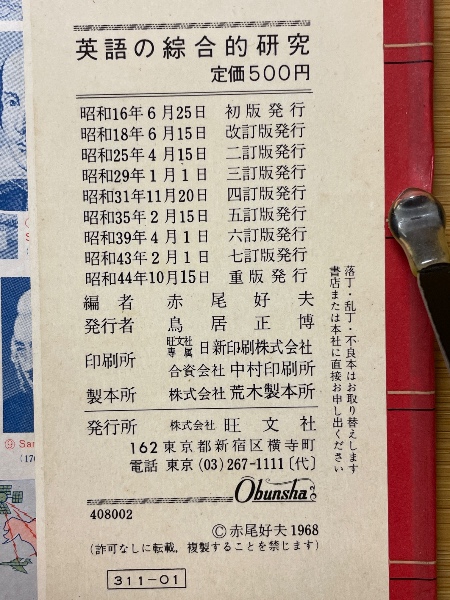 英語の綜合的研究
定価500円
昭和16年 6月25日 初版発行
昭和18年 6月15日 改訂版発行
昭和25年 4月15日 二訂版発行
昭和29年 1月 1日 三訂版発行
昭和31年11月20日 四訂版発行
昭和35年 2月15日 五訂版発行
昭和39年 4月 1日 六訂版発行
昭和43年 2月 1日 七訂版発行
昭和44年10月15日 重版発行
編者 赤尾好夫
発行者 鳥居正博
印刷所 旺文社専属 日新印刷株式会社
合資会社 中村印刷所
製本所 株式会社 荒木製本所
発行所 株式会社 旺文社
162 東京都新宿区横寺町
電話 東京 (03) 267-1111〔代〕
Obunsha
408002
©赤尾好夫1968
(許可なしに転載，複製することを禁じます)
311-01
落丁・乱丁・不良本はお取り替えします
書店または本社に直接お申し出ください
⑲ Sar
(17